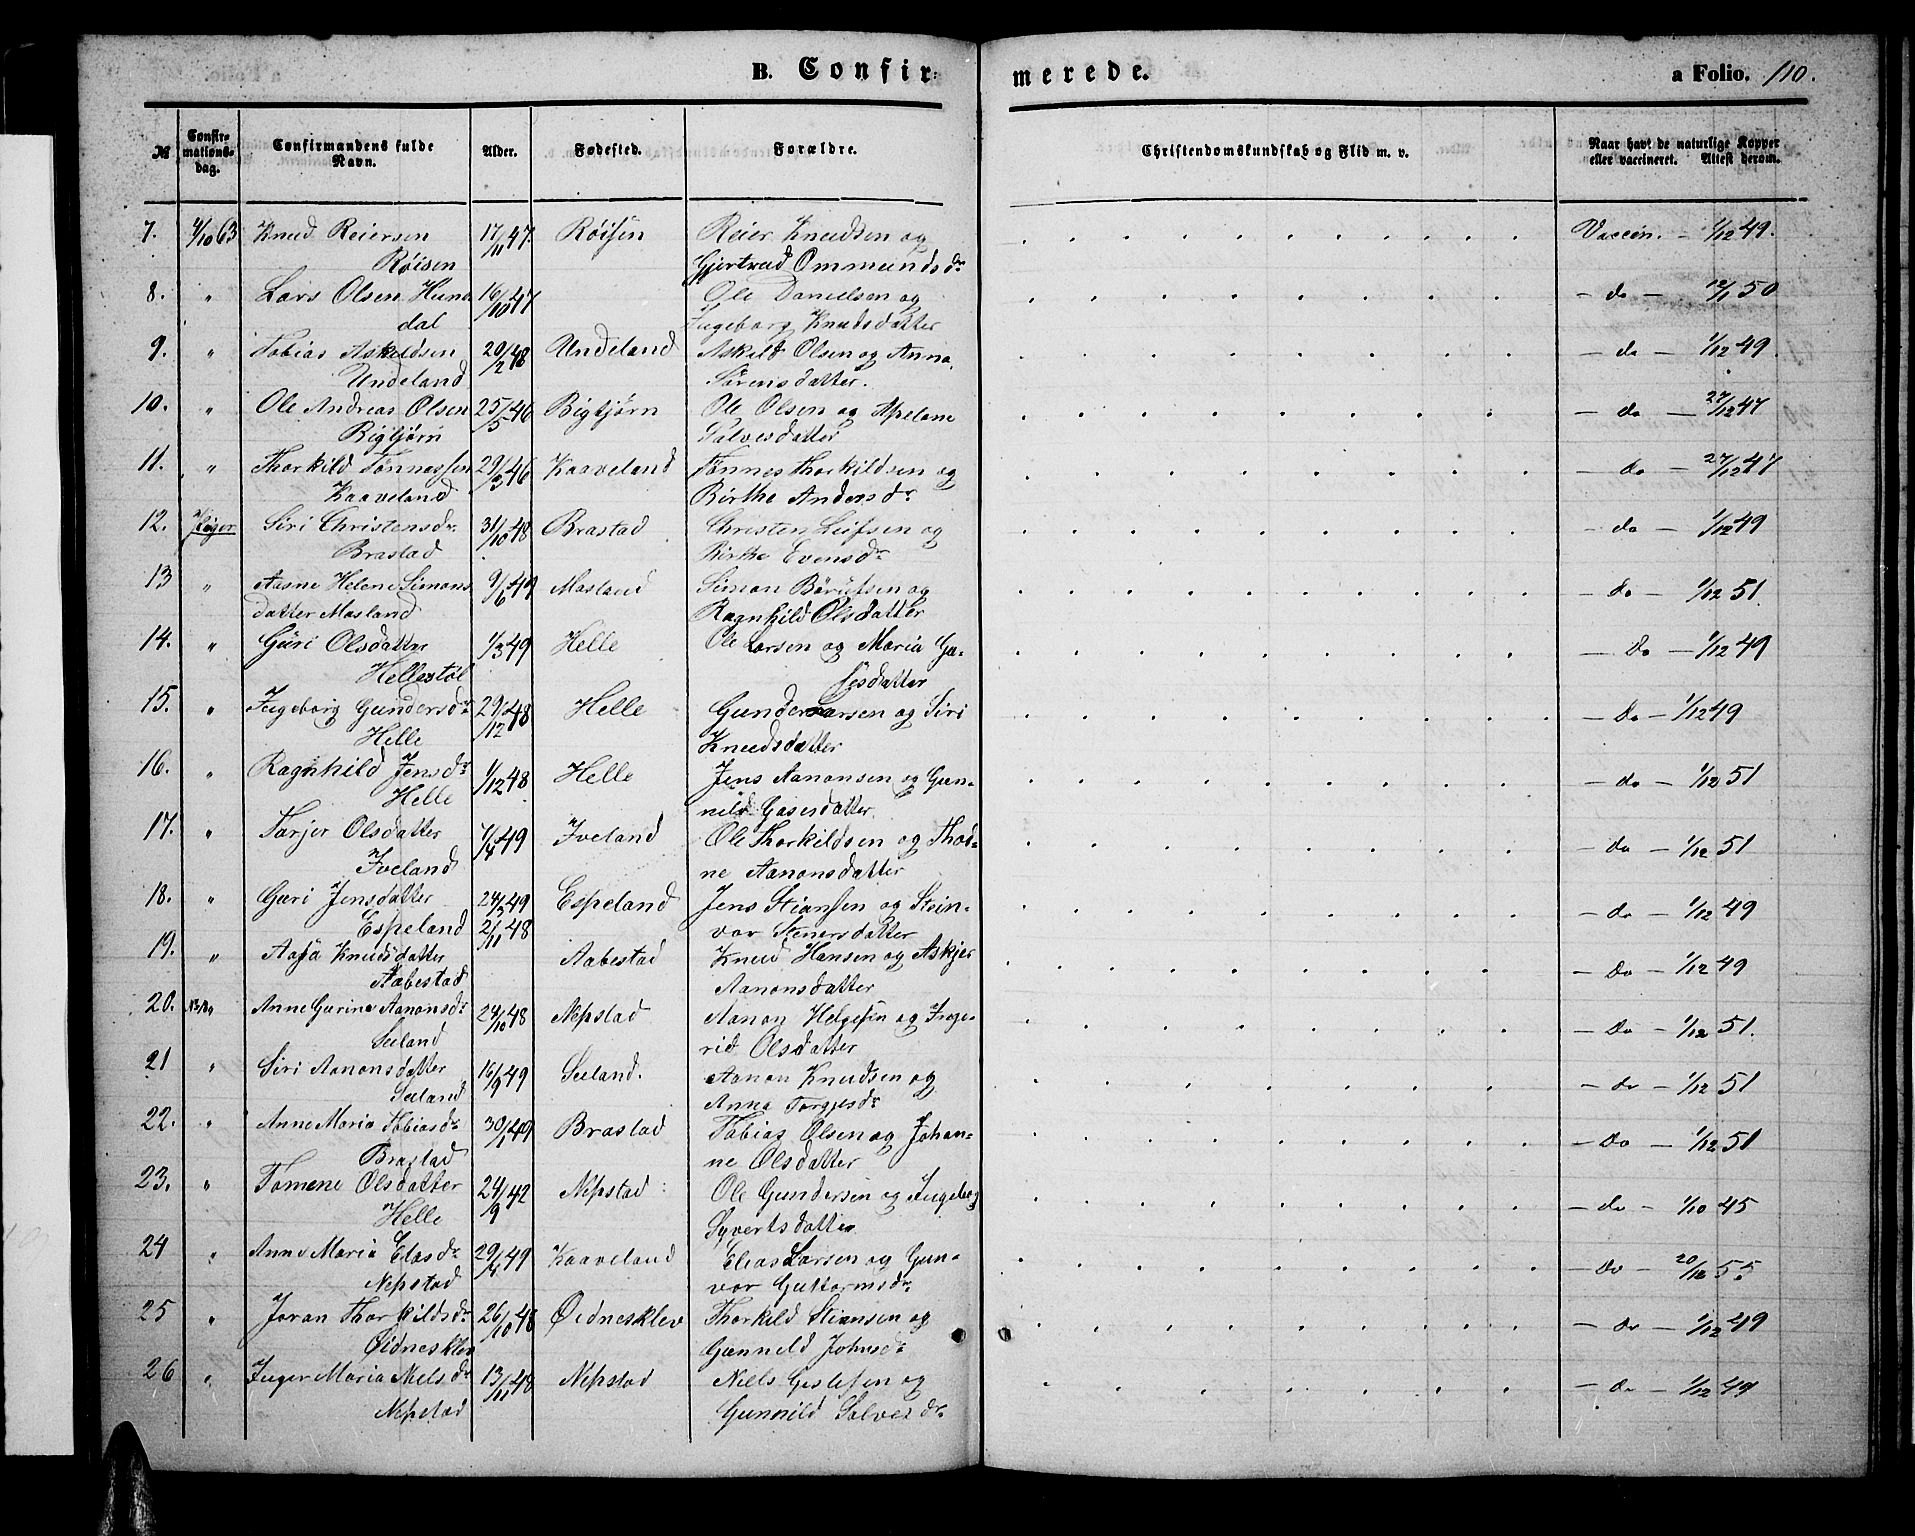 B. Confirmerede.
a Folio. 110.
№ Confirmationsdag. Confirmandens fulde Navn. Alder. Fødested. Forældre. Christendomskundskab og Flid m. v. Naar havt de naturlige Kopper eller vaccineret. Attest derom.
7. 4/10 63 Knud Reiersen 17/11 47. Røisen Reier Knudsen og Vaccin. — 1/12 49.
Røisen Gjertrud Ommundsdr
8. " Lars Olsen Hun 16/10 47 Ole Danielsen og — do — 12/1 50
dal Ingeborg Knudsdatter
9. " Tobias Askildsen 20/2 48 Undeland Askild Olsen og Anna — do — 1/12 49.
Undeland Sørensdatter.
10. " Ole Andreas Olsen 25/5 46 Bigtjørn Ole Olsen og Apelone — do — 27/12 47
Bigtjørn Salvesdatter
11. " Thorkild Tønnessen 29/3 46 Kaaveland Tønnes Thorkildsen og — do — 27/12 47
Kaaveland Birthe Andersdr
12. Piger Siri Christensdr. 31/10 48 Brastad Christen Leifsen og — do — 1/12 49
Brastad Birthe Evensdr
13 " Aasne Helene Simons 9/6 49 Mosland Simon Børufsen og — do — 1/12 51.
datter Mosland Ragnhild Olsdatter
14. " Guri Olsdatter 1/3 49 Helle Ole Larsen og Maria Ga- — Do — 1/12 49
Hellestøl sesdatter
15. " Ingeborg Gundersdr 29/12 48 Helle Gunder Larsen og Siri — Do — 1/12 49
Helle Knudsdatter
16. " Ragnhild Jensdr 1/12 48 Helle Jens Aanonsen og Gun- — do — 1/12 51
Helle nild Gasesdatter.
17. " Torjer Olsdatter 7/4 49 Iveland Ole Thorkildsen og Thor- — do — 1/12 51
Iveland ne Aanonsdatter
18. " Guri Jensdatter 24/3 49 Espeland Jens Stiansen og Stein- — do — 1/12 49
Espeland vor Stenersdatter
19. " Aasa Knudsdatter 2/11 48 Aabestad Knud Hansen og Askjer — Do — 1/12 49
Aabestad Aanonsdatter
20. Anne Gurine Aanonsdr 24/10 48 Nepstad Aanon Helgesen og Inge- — Do — 1/12 51.
Seeland rid Olsdatter
21 " Siri Aanonsdatter 16/9 49 Seeland. Aanon Knudsen og — Do — 1/12 51
Seeland Anna Torgjesdr
22. " Anne Maria Tobiasdr 30/1 49 Brastad Tobias Olsen og Johan- — Do — 1/12 51
Brastad ne Olsdatter
23. " Tomene Olsdatter 24/9 42 Nepstad Ole Gundersen og Ingeborg — do — 1/10 45
Helle Syvertsdatter
24 " Anne Maria Eliasdr 29/4 49 Kaaveland Elias Larsen og Gun- — Do — 20/12 55
Nepstad vor Guttormsdr
25 " Joran Thorkildsdr 26/10 48 Øidnesklev Thorkild Stiansen og — Do — 1/12 49
Øidnesklev Gunneld Johnsdr
26 " Inger Maria Nielsdr 13/11 48 Nepstad Niels Gislesen og — do — 1/12 49
Nepstad Gunnild Salvesdr